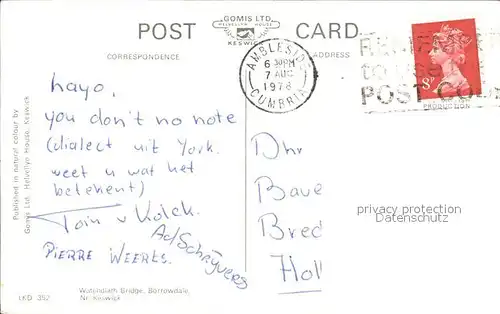 POST CARD
GOMIS LTD.
HELVELLYN HOUSE
KESWICK
CORRESPONDENCE
ADDRESS
AMBLESIDE
6 30PM
7 AUG
1978
CUMBRIA
REMEMBER
TO USE
POST CO
8½P
PRODUCTION
hayo,
you don't no note
(dialect uit York.
weet u wat het
betekent)
Toin v Kolck.
Ad Schrijvers
PIERRE WEERTS.
Dhr
Bave
Bred
Holl
privacy protection
Datenschutz
Published in natural colour by
Gomis Ltd. Helvellyn House, Keswick
LKD 352
Watendlath Bridge, Borrowdale,
Nr. Keswick